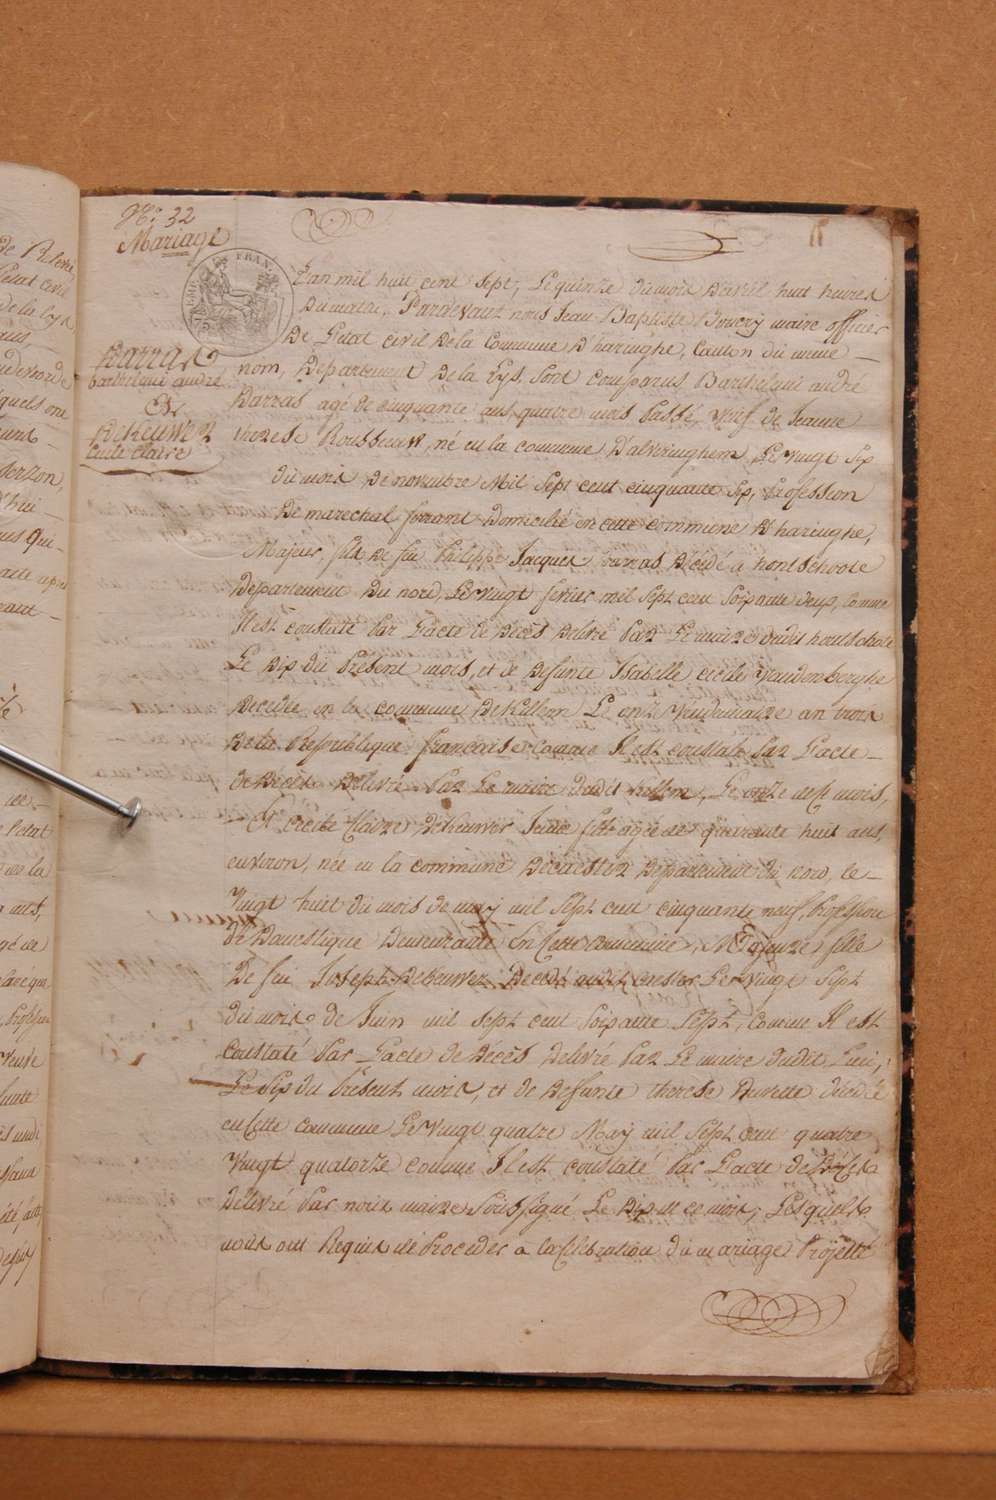 No. 32
Mariage
Barras
barthelmi andré
&
Dekeuwer
Cecile Claire
L'an mil huit cent sept, Le quinze du mois D'avril huit heures
Du matin, Pardevant nous Jean Baptiste Bouery maire officier
De L'etat civil De la Commune D'haringhe, Canton du meme
nom, Departement De la Lys, sont comparus Barthelmi andré
Barras agé de cinquante ans quatre mois passé, veuf de Jeanne
therese Rousseeuw, né en la commune D'alveringhem, Le vingt six
du mois De novembre Mil sept cent cinquante six, Profession
De marechal ferrant Domicilié en cette commune D'haringhe,
Majeur, fils De feu Philippe Jacques Barras Décédé a hontschoote
Departement Du nord, Le vingt fevrier mil sept cent soixante deux, Comme
Il est constaté Par L'acte de Décès Delivré Par Le maire dudit hontschote
Le Dix du Present mois, et de Defunte Isabelle cecile Vandenberghe
Decedée en la commune De killem Le onze Vendemiaire an trois
De la Republique francaise Comme Il est constaté Par L'acte
de Décès Delivré Par Le maire dudit killem, Le onze de ce mois,
Et Cecile Claire Dekeuwer Jeune fille agée de quarante huit ans,
environ, née en la commune De caester Departement du nord, le
Vingt huit du mois de may mil sept cent cinquante neuf, Profession
de Domestique Demeurante En Cette commune, Majeure fille
De feu Joseph Dekeuwer Decedé audit caester Le vingt sept
du mois de Juin mil sept cent soixante sept, Comme Il est
constaté Par L'acte de Décès Delivré Par Le maire dudit Lieu,
Le six du Present mois, et de Defunte therese Duvette décédée
en Cette commune Le vingt quatre May mil sept cent quatre
Vingt quatorze comme Il est constaté Par L'acte de Décès
Delivré Par nous maire soussigné Le Dix de ce mois, Lesquels
nous ont Requis de Proceder a la Celebration du mariage Projetté